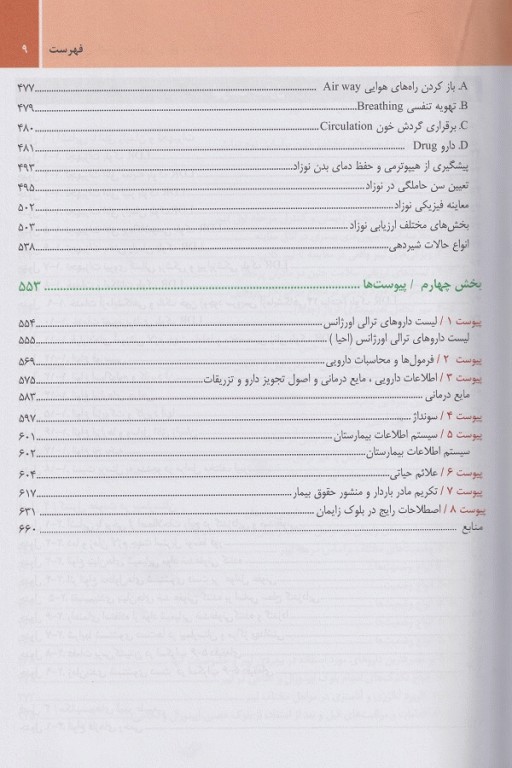 فهرست ۹
A. باز کردن راه‌های هوایی Air way ........ ۴۷۷
B. تهویه تنفسی Breathing ........ ۴۷۹
C. برقراری گردش خون Circulation ........ ۴۸۰
D. دارو Drug ........ ۴۸۱
پیشگیری از هیپوترمی و حفظ دمای بدن نوزاد ........ ۴۹۳
تعیین سن حاملگی در نوزاد ........ ۴۹۵
معاینه فیزیکی نوزاد ........ ۵۰۲
بخش‌های مختلف ارزیابی نوزاد ........ ۵۰۳
انواع حالات شیردهی ........ ۵۳۸
بخش چهارم / پیوست‌ها ........ ۵۵۳
پیوست ۱ / لیست داروهای ترالی اورژانس ........ ۵۵۴
لیست داروهای ترالی اورژانس (احیا ) ........ ۵۵۵
پیوست ۲ / فرمول‌ها و محاسبات دارویی ........ ۵۶۹
پیوست ۳ / اطلاعات دارویی ، مایع درمانی و اصول تجویز دارو و تزریقات ........ ۵۷۵
مایع درمانی ........ ۵۸۳
پیوست ۴ / سونداژ ........ ۵۹۷
پیوست ۵ / سیستم اطلاعات بیمارستان ........ ۶۰۱
سیستم اطلاعات بیمارستان ........ ۶۰۲
پیوست ۶ / علائم حیاتی ........ ۶۰۴
پیوست ۷ / تکریم مادر باردار و منشور حقوق بیمار ........ ۶۱۷
پیوست ۸ / اصطلاحات رایج در بلوک زایمان ........ ۶۳۱
منابع ........ ۶۶۰